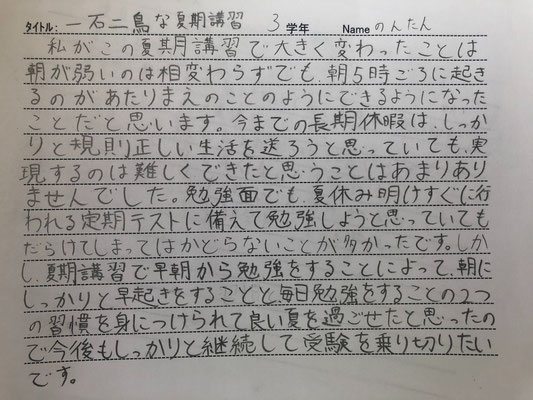 タイトル: 一石二鳥な夏期講習 3 学年 Name のんたん
私がこの夏期講習で大きく変わったことは
朝が弱いのは相変わらずでも、朝5時ごろに起き
るのがあたりまえのことのようにできるようになった
ことだと思います。今までの長期休暇は、しっか
りと規則正しい生活を送ろうと思っていても、実
現するのは難しくできたと思うことはあまりあり
ませんでした。勉強面でも、夏休み明けすぐに行
われる定期テストに備えて勉強しようと思っていても
だらけてしまってはかどらないことが多かったです。しか
し、夏期講習で早朝から勉強をすることによって、朝に
しっかりと早起きをすることと毎日勉強をすることの2つ
の習慣を身につけられて良い夏を過ごせたと思ったの
で今後もしっかりと継続して受験を乗り切りたい
です。